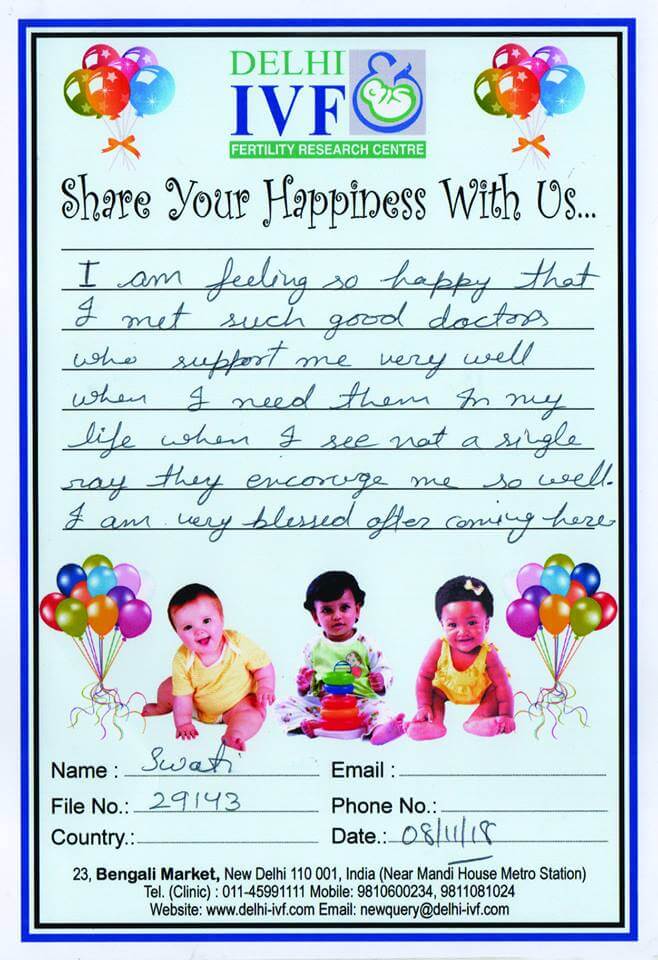 DELHI
IVF
FERTILITY RESEARCH CENTRE
Share Your Happiness With Us...
I am feeling so happy that
I met such good doctors
who support me very well
when I need them In my
life when I see not a single
ray they encoruge me so well.
I am very blessed after coming here.
Name : Swati Email :
File No.: 29143 Phone No.:
Country.: Date.: 08/11/18
23, Bengali Market, New Delhi 110 001, India (Near Mandi House Metro Station)
Tel. (Clinic) : 011-45991111 Mobile: 9810600234, 9811081024
Website: www.delhi-ivf.com Email: newquery@delhi-ivf.com